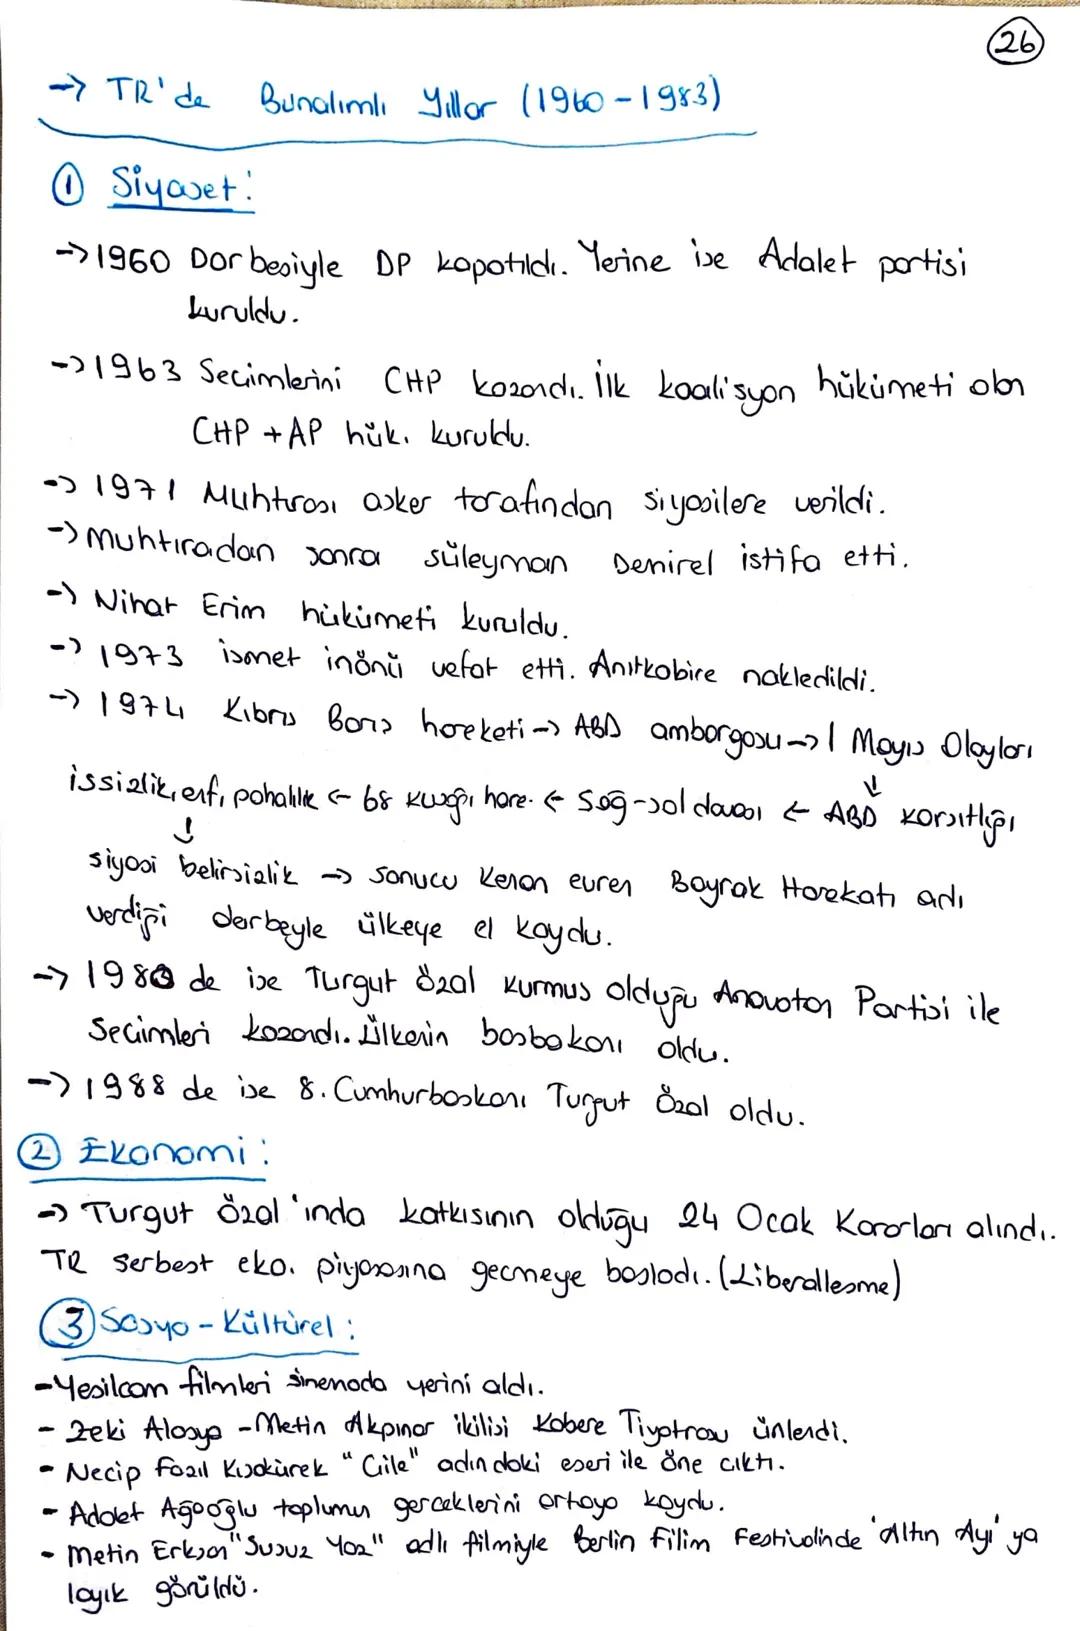 26
→ TR'de Bunalımlı Yıllar (1960-1983)
① Siyaset:
→ 1960 Darbesiyle DP kapatıldı. Yerine ise Adalet partisi
kuruldu.
→ 1963 Secimlerini CHP kazandı. İlk koalisyon hükümeti olan
CHP + AP hük. kuruldu.
→ 1971 Muhtırası asker tarafından siyasilere verildi.
→ Muhtıradan sonra süleyman Demirel istifa etti.
→ Nihat Erim hükümeti kuruldu.
→ 1973 ismet inönü vefat etti. Anıtkabire nakledildi.
→ 1974 Kıbrıs Barış hareketi → ABD ambargosu → 1 Mayıs Olayları
↓
issizlik, enf, pahalılık ← 68 kuşağı hare. ← Sağ-sol davası ← ABD karsıtlığı
↓
siyasi belirsizlik → sonucu Kenan evren Bayrak Harekatı adı
verdiği darbeyle ülkeye el koydu.
→ 1983 de ise Turgut Özal kurmus olduğu Anavatan Partisi ile
Secimleri kazandı. Ülkenin basbakanı oldu.
→ 1988 de ise 8. Cumhurbaskanı Turgut Özal oldu.
② Ekonomi:
→ Turgut Özal'ında katkısının olduğu 24 Ocak Kararları alındı.
TR serbest eko. piyasasına gecmeye basladı. (Liberallesme)
③ Sosyo-Kültürel:
- Yesilcam filmleri sinemada yerini aldı.
- Zeki Alasya - Metin Akpınar ikilisi Kabere Tiyatrosu ünlendi.
- Necip Fazıl Kısakürek "Cile" adındaki eseri ile öne cıktı.
- Adalet Ağaoğlu toplumun gerceklerini ortaya koydu.
- Metin Erksan "Susuz Yaz" adlı filmiyle Berlin Filim Festivalinde 'Altın Ayı' ya
layık görüldü.